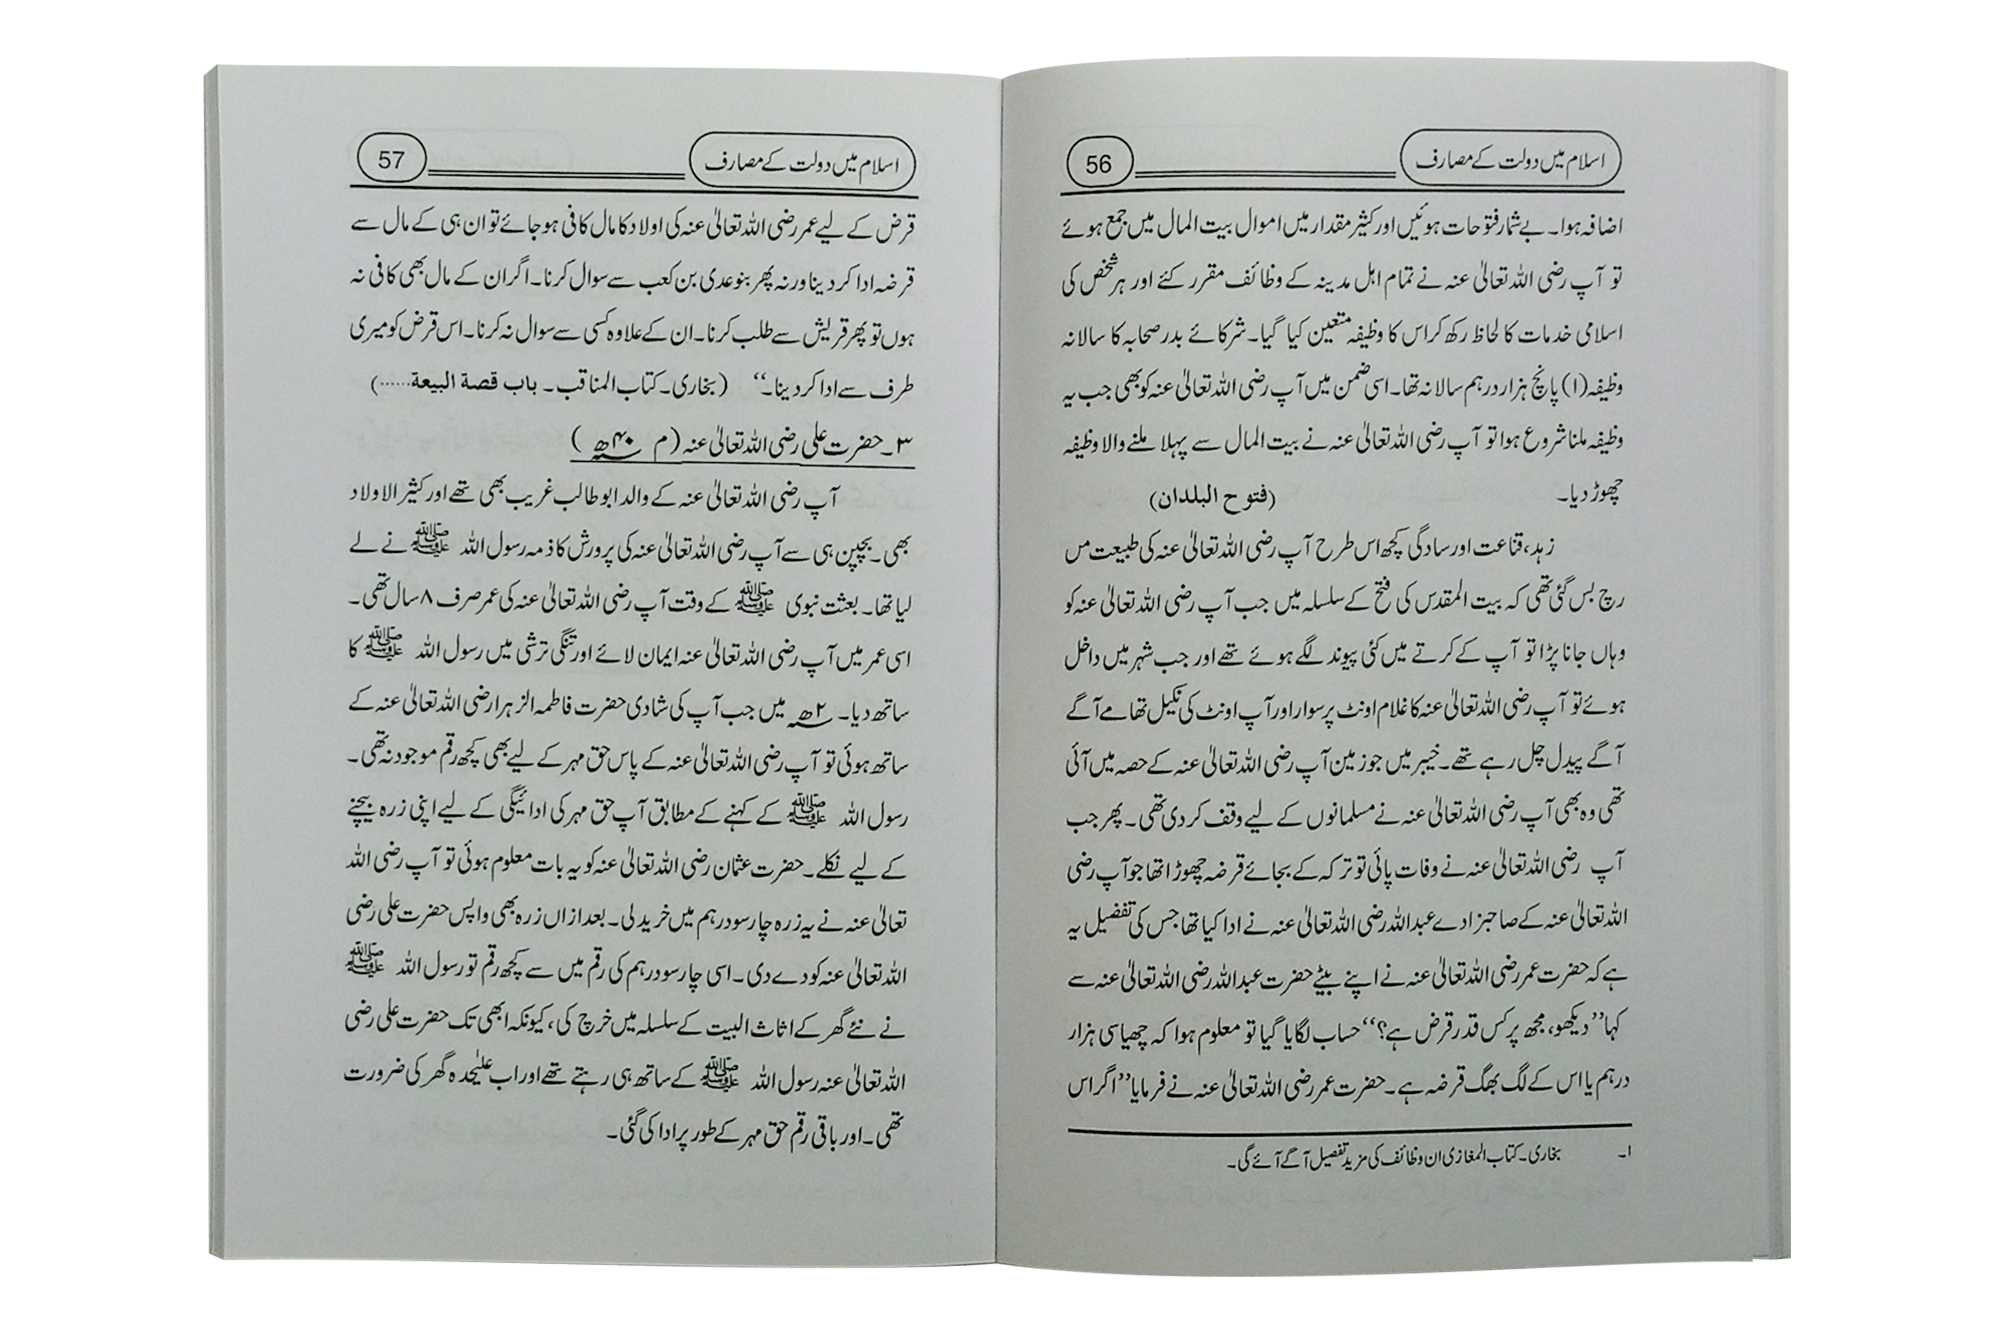 اسلام میں دولت کے مصارف
56
اضافہ ہوا۔ بے شمار فتوحات ہوئیں اور کثیر مقدار میں اموال بیت المال میں جمع ہوئے
تو آپ رضی اللہ تعالیٰ عنہ نے تمام اہل مدینہ کے وظائف مقرر کئے اور ہر شخص کی
اسلامی خدمات کا لحاظ رکھ کر اس کا وظیفہ متعین کیا گیا۔ شرکائے بدر صحابہ کا سالانہ
وظیفہ (۱) پانچ ہزار درہم سالانہ تھا۔ اسی ضمن میں آپ رضی اللہ تعالیٰ عنہ کو بھی جب یہ
وظیفہ ملنا شروع ہوا تو آپ رضی اللہ تعالیٰ عنہ نے بیت المال سے پہلا ملنے والا وظیفہ
چھوڑ دیا۔ (فتوح البلدان)
زہد، قناعت اور سادگی کچھ اس طرح آپ رضی اللہ تعالیٰ عنہ کی طبیعت مں
رچ بس گئی تھی کہ بیت المقدس کی فتح کے سلسلہ میں جب آپ رضی اللہ تعالیٰ عنہ کو
وہاں جانا پڑا تو آپ کے کرتے میں کئی پیوند لگے ہوئے تھے اور جب شہر میں داخل
ہوئے تو آپ رضی اللہ تعالیٰ عنہ کا غلام اونٹ پر سوار اور آپ اونٹ کی نکیل تھامے آگے
آگے پیدل چل رہے تھے۔ خیبر میں جو زمین آپ رضی اللہ تعالیٰ عنہ کے حصہ میں آئی
تھی وہ بھی آپ رضی اللہ تعالیٰ عنہ نے مسلمانوں کے لیے وقف کر دی تھی۔ پھر جب
آپ رضی اللہ تعالیٰ عنہ نے وفات پائی تو ترکہ کے بجائے قرضہ چھوڑا تھا جو آپ رضی
اللہ تعالیٰ عنہ کے صاحبزادے عبداللہ رضی اللہ تعالیٰ عنہ نے ادا کیا تھا جس کی تفصیل یہ
ہے کہ حضرت عمر رضی اللہ تعالیٰ عنہ نے اپنے بیٹے حضرت عبداللہ رضی اللہ تعالیٰ عنہ سے
کہا ’’دیکھو، مجھ پر کس قدر قرض ہے؟‘‘ حساب لگایا گیا تو معلوم ہوا کہ چھیاسی ہزار
درہم یا اس کے لگ بھگ قرضہ ہے۔ حضرت عمر رضی اللہ تعالیٰ عنہ نے فرمایا ’’اگر اس
۱۔ بخاری۔ کتاب المغازی ان وظائف کی مزید تفصیل آگے آئے گی۔
اسلام میں دولت کے مصارف
57
قرض کے لیے عمر رضی اللہ تعالیٰ عنہ کی اولاد کا مال کافی ہو جائے تو ان ہی کے مال سے
قرضہ ادا کر دینا ورنہ پھر بنو عدی بن کعب سے سوال کرنا۔ اگر ان کے مال بھی کافی نہ
ہوں تو پھر قریش سے طلب کرنا۔ ان کے علاوہ کسی سے سوال نہ کرنا۔ اس قرض کو میری
طرف سے ادا کر دینا۔‘‘ (بخاری۔ کتاب المناقب۔ باب قصة البيعة......)
۳۔ حضرت علی رضی اللہ تعالیٰ عنہ (م ۴۰ھ)
آپ رضی اللہ تعالیٰ عنہ کے والد ابو طالب غریب بھی تھے اور کثیر الاولاد
بھی۔ بچپن ہی سے آپ رضی اللہ تعالیٰ عنہ کی پرورش کا ذمہ رسول اللہ ﷺ نے لے
لیا تھا۔ بعثت نبوی ﷺ کے وقت آپ رضی اللہ تعالیٰ عنہ کی عمر صرف ۸ سال تھی۔
اسی عمر میں آپ رضی اللہ تعالیٰ عنہ ایمان لائے اور تنگی ترشی میں رسول اللہ ﷺ کا
ساتھ دیا۔ ۲ھ میں جب آپ کی شادی حضرت فاطمہ الزہرا رضی اللہ تعالیٰ عنہ کے
ساتھ ہوئی تو آپ رضی اللہ تعالیٰ عنہ کے پاس حق مہر کے لیے بھی کچھ رقم موجود نہ تھی۔
رسول اللہ ﷺ کے کہنے کے مطابق آپ حق مہر کی ادائیگی کے لیے اپنی زرہ بیچنے
کے لیے نکلے۔ حضرت عثمان رضی اللہ تعالیٰ عنہ کو یہ بات معلوم ہوئی تو آپ رضی اللہ
تعالیٰ عنہ نے یہ زرہ چار سو درہم میں خرید لی۔ بعد ازاں زرہ بھی واپس حضرت علی رضی
اللہ تعالیٰ عنہ کو دے دی۔ اسی چار سو درہم کی رقم میں سے کچھ رقم تو رسول اللہ ﷺ
نے نئے گھر کے اثاث البیت کے سلسلہ میں خرچ کی، کیونکہ ابھی تک حضرت علی رضی
اللہ تعالیٰ عنہ رسول اللہ ﷺ کے ساتھ ہی رہتے تھے اور اب علیٰحدہ گھر کی ضرورت
تھی۔ اور باقی رقم حق مہر کے طور پر ادا کی گئی۔